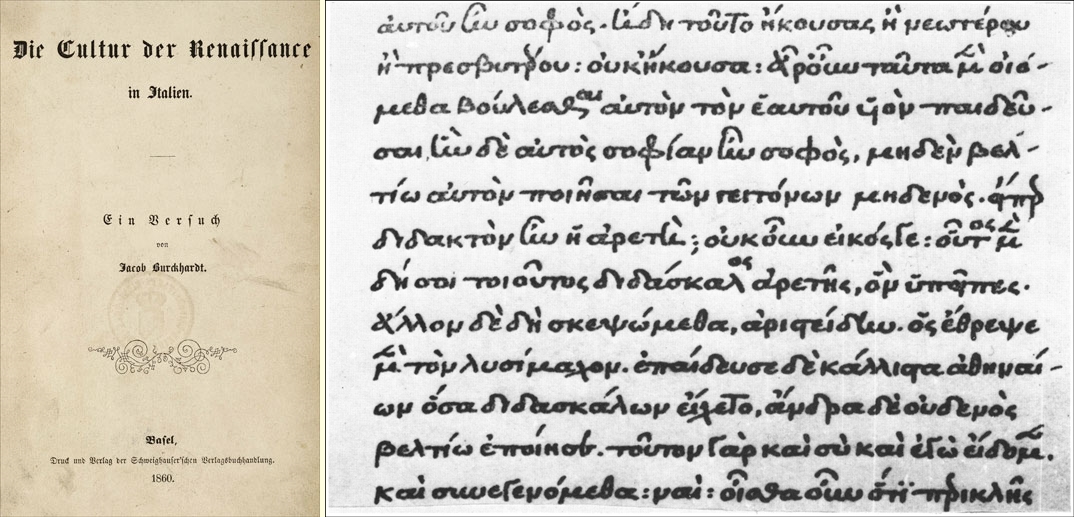 Die Cultur der Renaissance
in Italien.
Ein Versuch
von
Jacob Burckhardt.
Basel,
Druck und Verlag der Schweighauser'schen Verlagsbuchhandlung.
1860.
αὐτοῦ ἦν σοφὸς. ἤδη τοῦτο ἤκουσας ἢ νεωτέρου
ἢ πρεσβυτέρου: οὐκ ἤκουσα: ἆρ' οὖν ταῦτα μὲν οἰό-
μεθα βούλεσθαι αὐτὸν τὸν ἑαυτοῦ ὑὸν παιδεῦ-
σαι, ἣν δὲ αὐτὸς σοφίαν ἦν σοφὸς, μηδὲν βελ-
τίω αὐτὸν ποιῆσαι τῶν γειτόνων μηδενὸς. εἴπερ
διδακτὸν ἦν ἡ ἀρετὴ; οὐκοῦν εἰκός γε: οὗτος μὲν
δή σοι τοιοῦτος διδάσκαλος ἀρετῆς, ὃν ὑπεῖπες.
ἄλλον δὲ δὴ σκεψώμεθα, ἀριστείδην. ὃς ἔθρεψε
μὲν τὸν λυσίμαχον. ἐπαίδευσε δὲ κάλλιστα ἀθηναί-
ων ὅσα διδασκάλων εἴχετο, ἄνδρα δὲ οὐδενὸς
βελτίω ἐποίησε. τοῦτον γὰρ καὶ σὺ καὶ ἐγὼ εἴδομεν.
καὶ συνεγενόμεθα: ναί: οἶσθα οὖν ὅτι περικλῆς